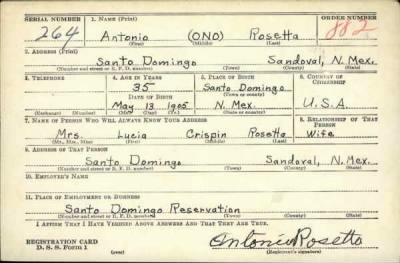 SERIAL NUMBER 1. NAME (Print) ORDER NUMBER
264 Antonio (ONO) Rosetta 882
(First) (Middle) (Last)
2. ADDRESS (Print)
Santo Domingo Sandoval, N. Mex.
(Number and street or R. F. D. number) (Town) (County) (State)
3. TELEPHONE 4. AGE IN YEARS 5. PLACE OF BIRTH 6. COUNTRY OF CITIZENSHIP
35 Santo Domingo
DATE OF BIRTH (Town or county)
May 13 1905 N. Mex. U.S.A.
(Exchange) (Number) (Mo.) (Day) (Yr.) (State or country)
7. NAME OF PERSON WHO WILL ALWAYS KNOW YOUR ADDRESS 8. RELATIONSHIP OF THAT PERSON
Mrs. Lucia Crispin Rosetta Wife
(Mr., Mrs., Miss) (First) (Middle) (Last)
9. ADDRESS OF THAT PERSON
Santo Domingo Sandoval, N. Mex.
(Number and street or R. F. D. number) (Town) (County) (State)
10. EMPLOYER'S NAME
11. PLACE OF EMPLOYMENT OR BUSINESS
Santo Domingo Reservation
(Number and street or R. F. D. number) (Town) (County) (State)
I AFFIRM THAT I HAVE VERIFIED ABOVE ANSWERS AND THAT THEY ARE TRUE.
REGISTRATION CARD Antonio Rosetta
D. S. S. Form 1 (over) (Registrant's signature)